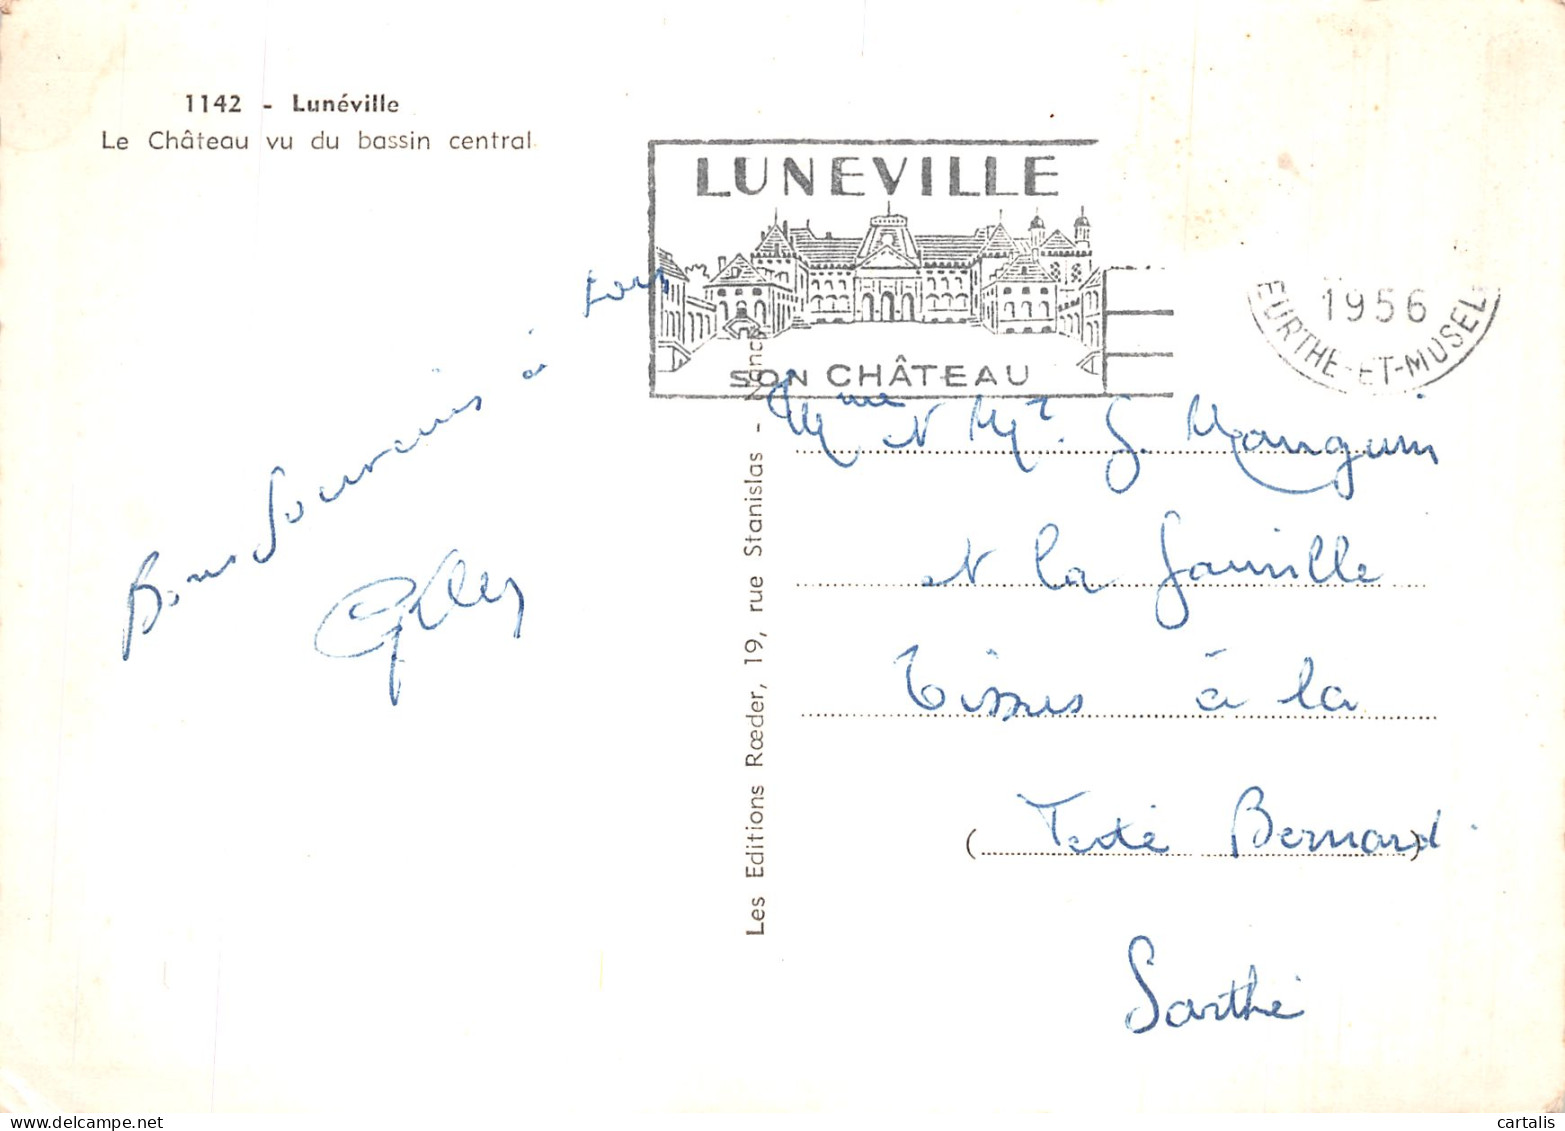 1142 - Lunéville
Le Château vu du bassin central
LUNEVILLE
SON CHÂTEAU
1956
EURTHE-ET-MOSEL
Bons Souvenirs à tous
Gilles
Les Editions Rœder, 19, rue Stanislas - Nancy
Mme et Mr. G. Mangin
et la famille
Tissus à la
(Ferté Bernard)
Sarthe
www.cartalis.delcampe.net
cartalis